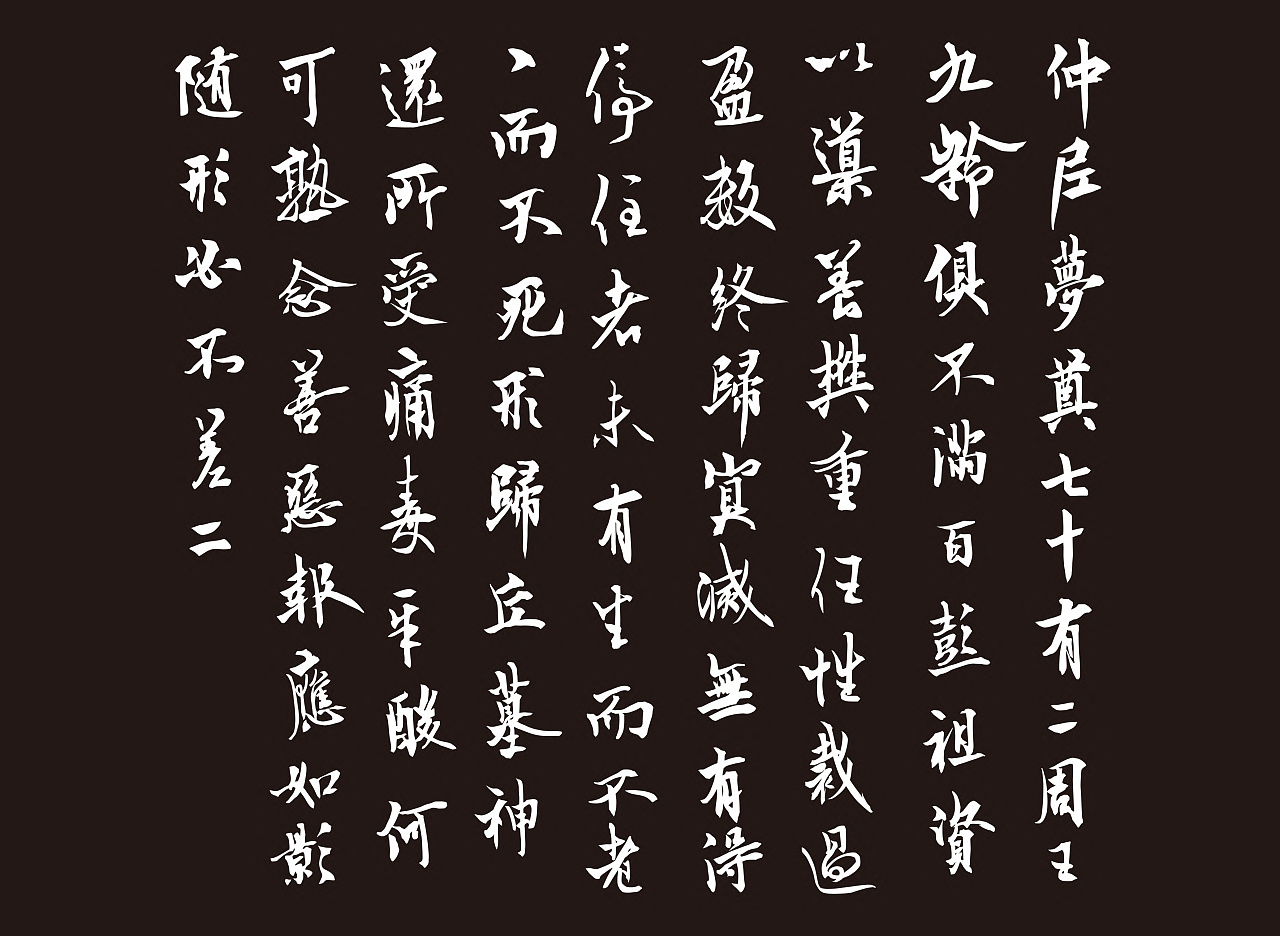 仲尼夢奠七十有二周王
九齡俱不滿百彭祖資
以導養樊重任性裁過
盈數終歸冥滅無有得
停住者未有生而不老
、而不死形歸丘墓神
還所受痛毒辛酸何
可熟念善惡報應如影
随形必不差二